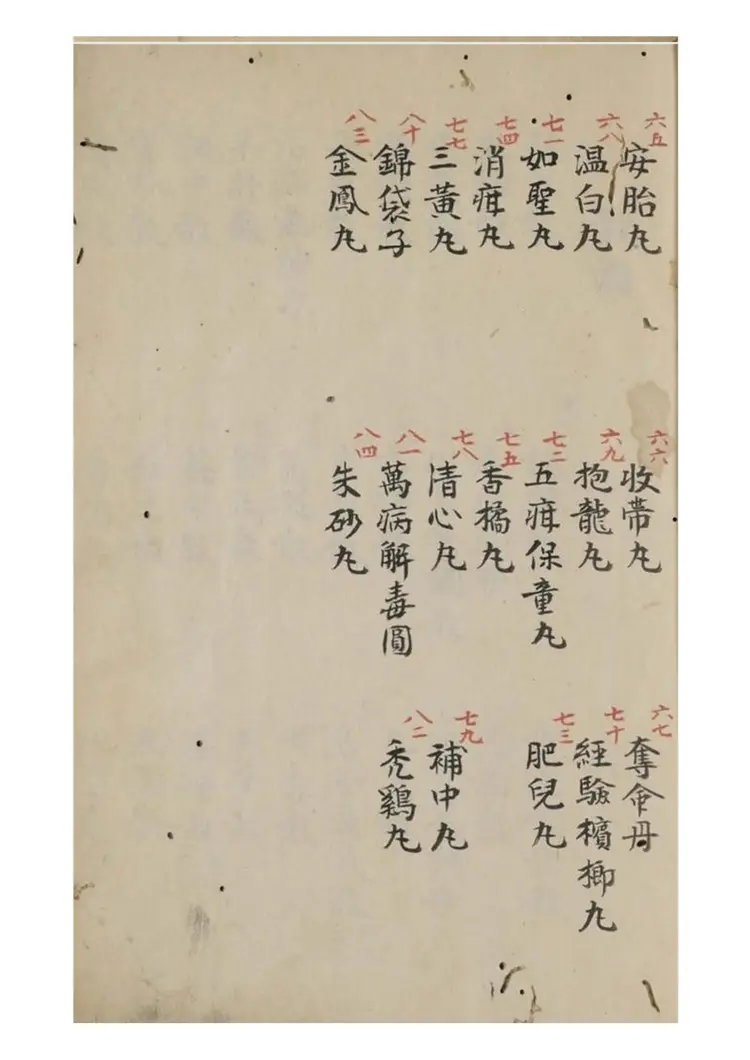 六五 安胎丸
六六 收帯丸
六七 奪命丹
六八 温白丸
六九 抱龍丸
七十 經驗檳榔丸
七一 如聖丸
七二 五疳保童丸
七三 肥兒丸
七四 消疳丸
七五 香橘丸
七七 三黃丸
七八 清心丸
七九 補中丸
八十 錦袋子
八一 萬病解毒圓
八二 禿鷄丸
八三 金鳳丸
八四 朱砂丸